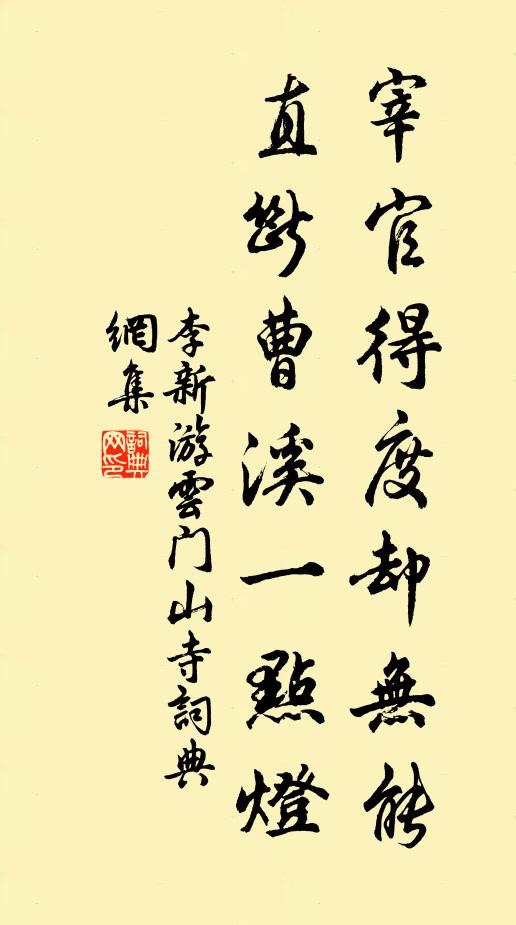 宰官得度却無能
直斷曹溪一點燈
李新游雲门山寺詞典
網集
詞典
网印